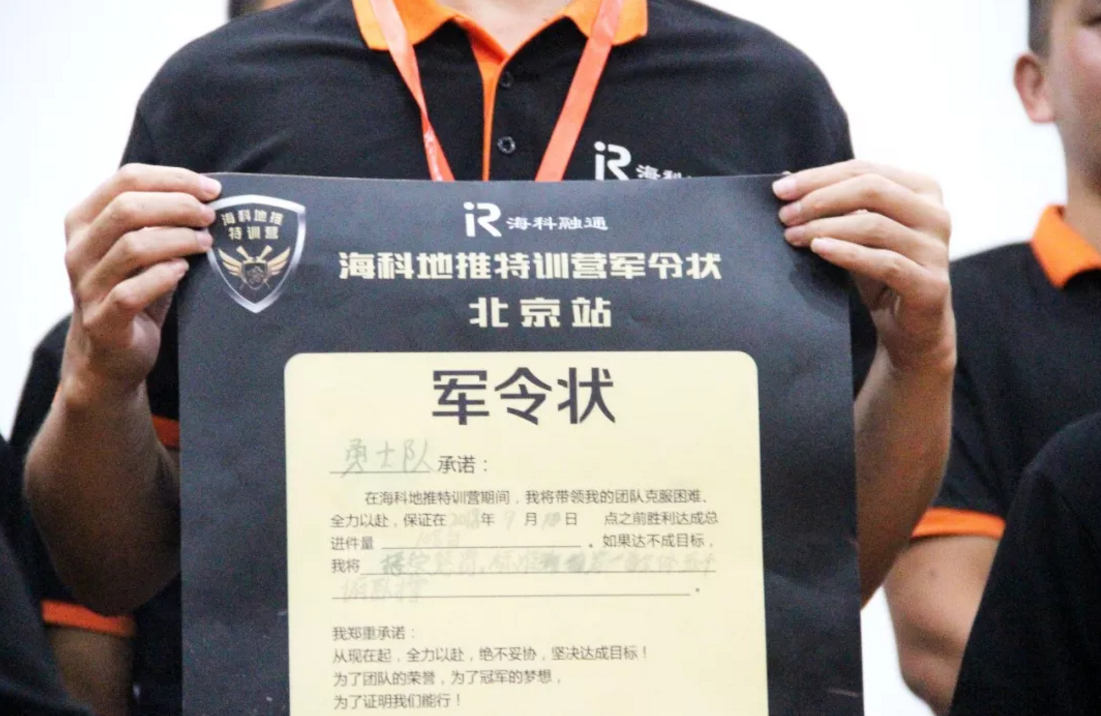 iR 海科
海科地推
特训营
iR 海科融通
海科地推特训营军令状
北京站
军令状
勇士队承诺：
在海科地推特训营期间，我将带领我的团队克服困难、
全力以赴，保证在 年9月 日 点之前胜利达成总
进件量 。如果达不成目标，
我将
。
我郑重承诺：
从现在起，全力以赴，绝不妥协，坚决达成目标！
为了团队的荣誉，为了冠军的梦想，
为了证明我们能行！